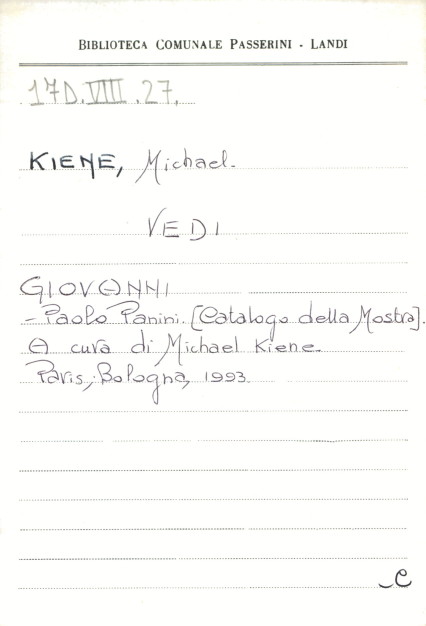 BIBLIOTECA COMUNALE PASSERINI - LANDI
17D.VIII.27.
KIENE, Michael.
VEDI
GIOVANNI
- Paolo Panini. [Catalogo della Mostra].
A cura di Michael Kiene.
Paris, Bologna, 1993.
C